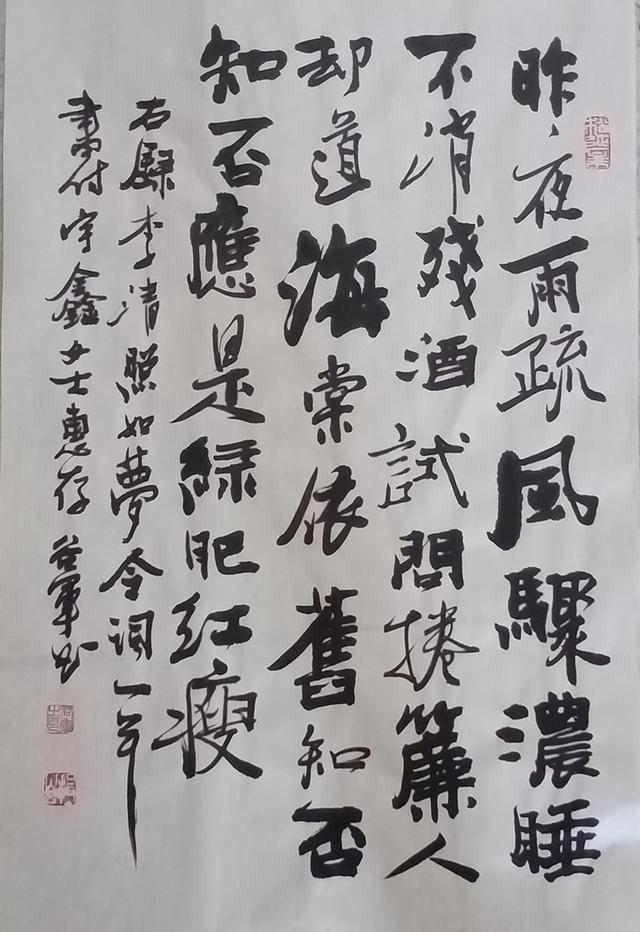 昨夜雨疏風驟濃睡
不消殘酒試問捲簾人
却道海棠依舊知否
知否應是綠肥紅瘦
右録李清照如夢令詞一首
書付宇鑫女士惠存 谷軍书